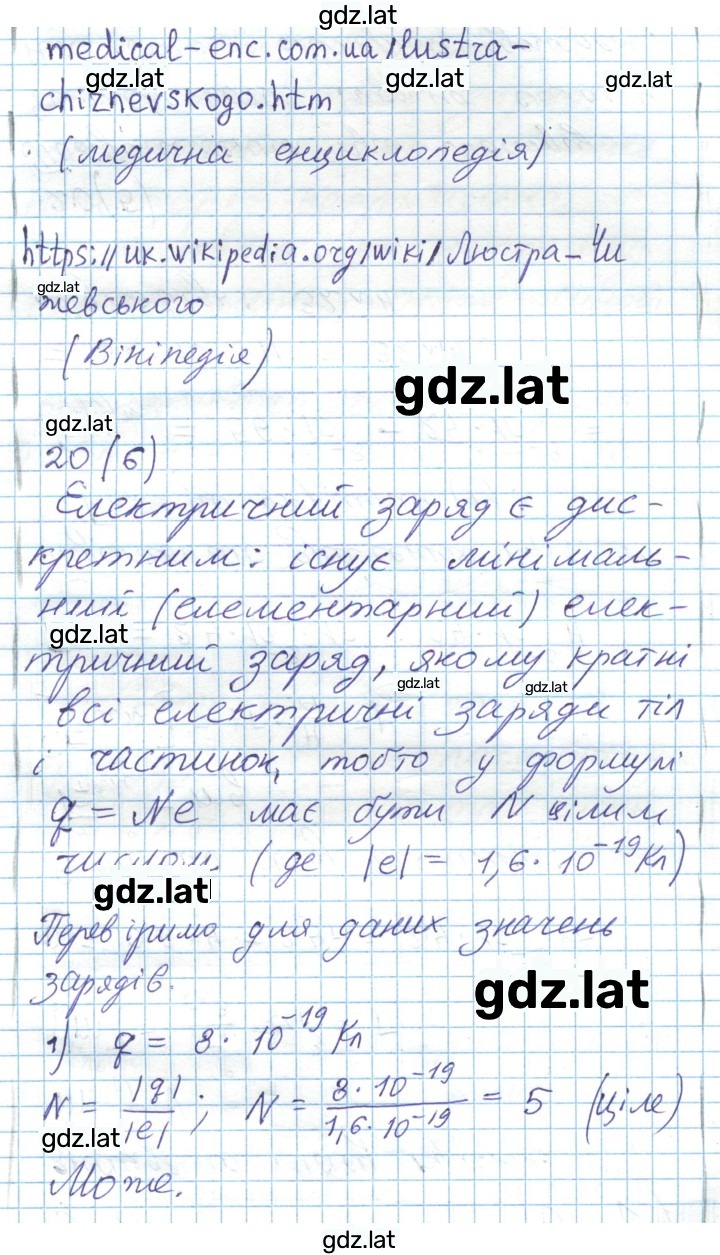 gdz.lat
medical-enc.com.ua/lustra-
gdz.lat gdz.lat gdz.lat
chizhevskogo.htm
(медична енциклопедія)
https://uk.wikipedia.org/wiki/Люстра_Чи
gdz.lat
жевського
(Вікіпедія)
gdz.lat
gdz.lat
20 (6)
Електричний заряд є дис-
кретним: існує мінімаль-
ний (елементарний) елек-
gdz.lat
тричний заряд, якому кратні
gdz.lat gdz.lat
всі електричні заряди тіл
і частинок, тобто у формулі
q = Ne має бути N цілим
числом. (де |e| = 1,6·10⁻¹⁹ Кл)
gdz.lat
Перевіримо для даних значень
зарядів.
gdz.lat
1) q = 8·10⁻¹⁹ Кл
N = |q|/|e|; N = 8·10⁻¹⁹/1,6·10⁻¹⁹ = 5 (ціле)
gdz.lat
Може.
gdz.lat